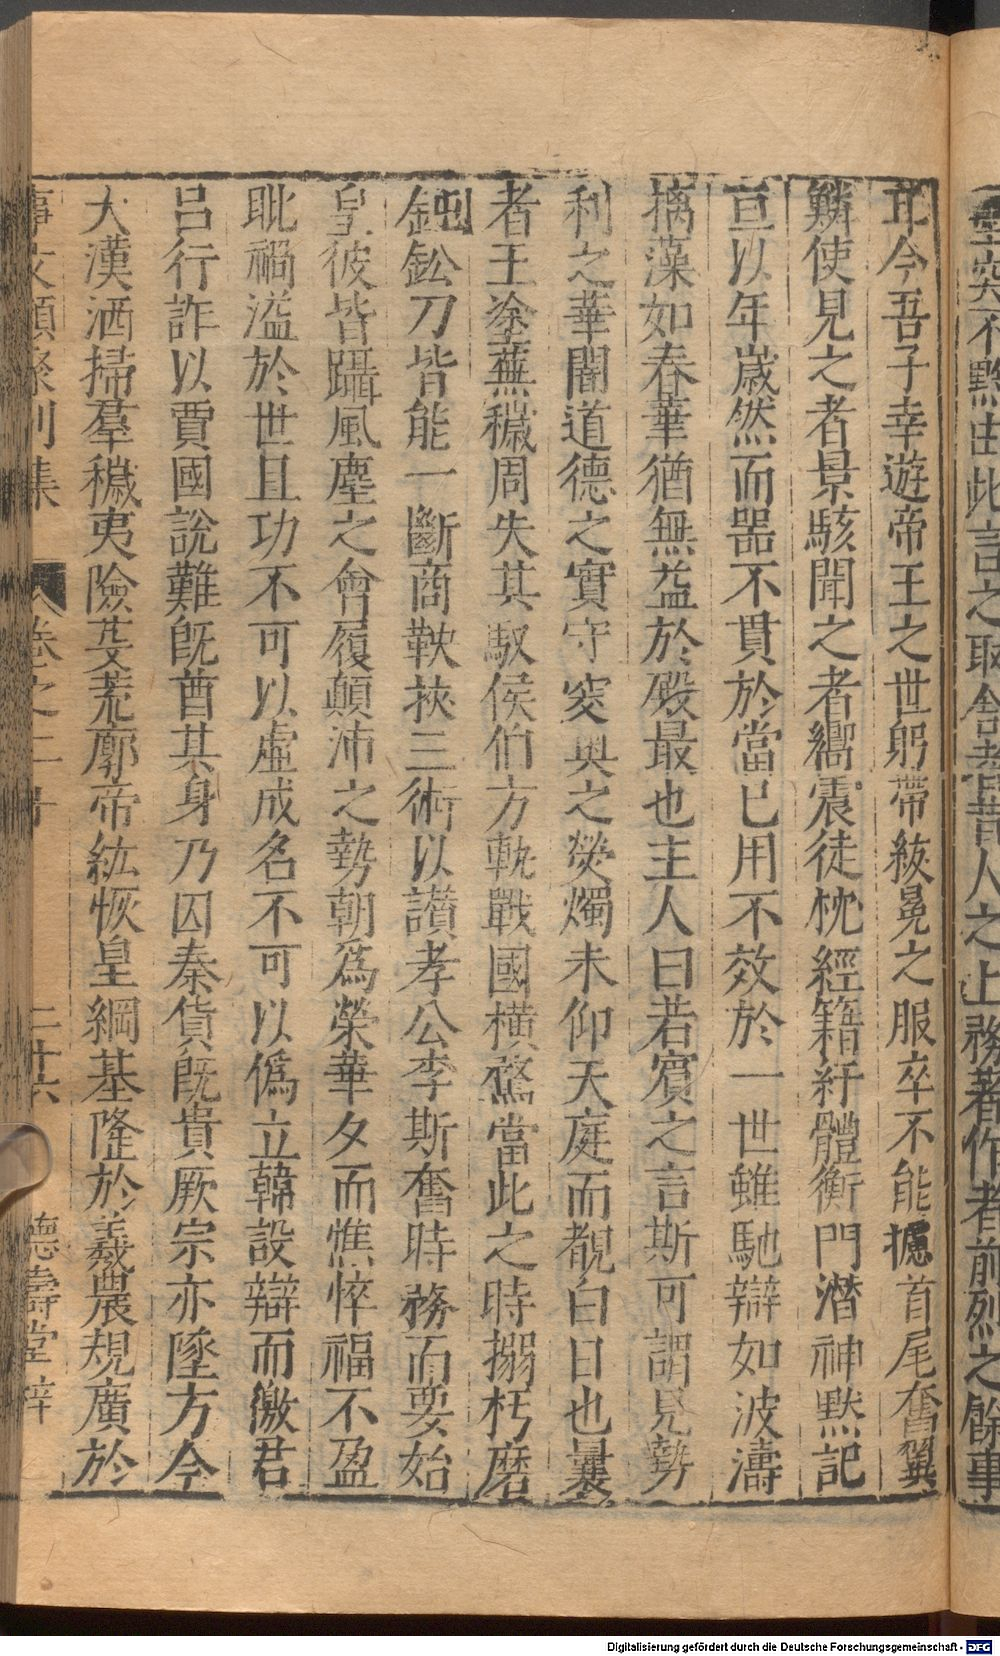 聖突不黔由此言之取舍者昔人之上務著作者前烈之餘事
耳今吾子幸遊帝王之世躬帶紱冕之服卒不能攄首尾奮翼
鱗使見之者景駭聞之者嚮震徒枕經籍紆體衡門潛神默記
亘以年歲然而器不賈於當已用不效於一世雖馳辯如波濤
摛藻如春華猶無益於殿最也主人曰若賓之言斯可謂見勢
利之華闇道德之實守穾奧之熒燭未仰天庭而覩白日也曩
者王塗蕪穢周失其馭侯伯方軌戰國橫騖當此之時搦朽磨
鈍鈆刀皆能一斷商鞅挾三術以讃孝公李斯奮時務而要始
皇彼皆躡風塵之會履顛沛之勢朝爲榮華夕而憔悴福不盈
眦禍溢於世且功不可以虛成名不可以僞立韓設辯而徼君
呂行詐以賈國說難旣酋其身乃囚秦貨旣貴厥宗亦墜方今
大漢洒掃羣穢夷險芟荒廓帝紘恢皇綱基隆於羲農規廣於
事文類聚別集 卷之二 二十六 德壽堂梓
Digitalisierung gefördert durch die Deutsche Forschungsgemeinschaft - DFG